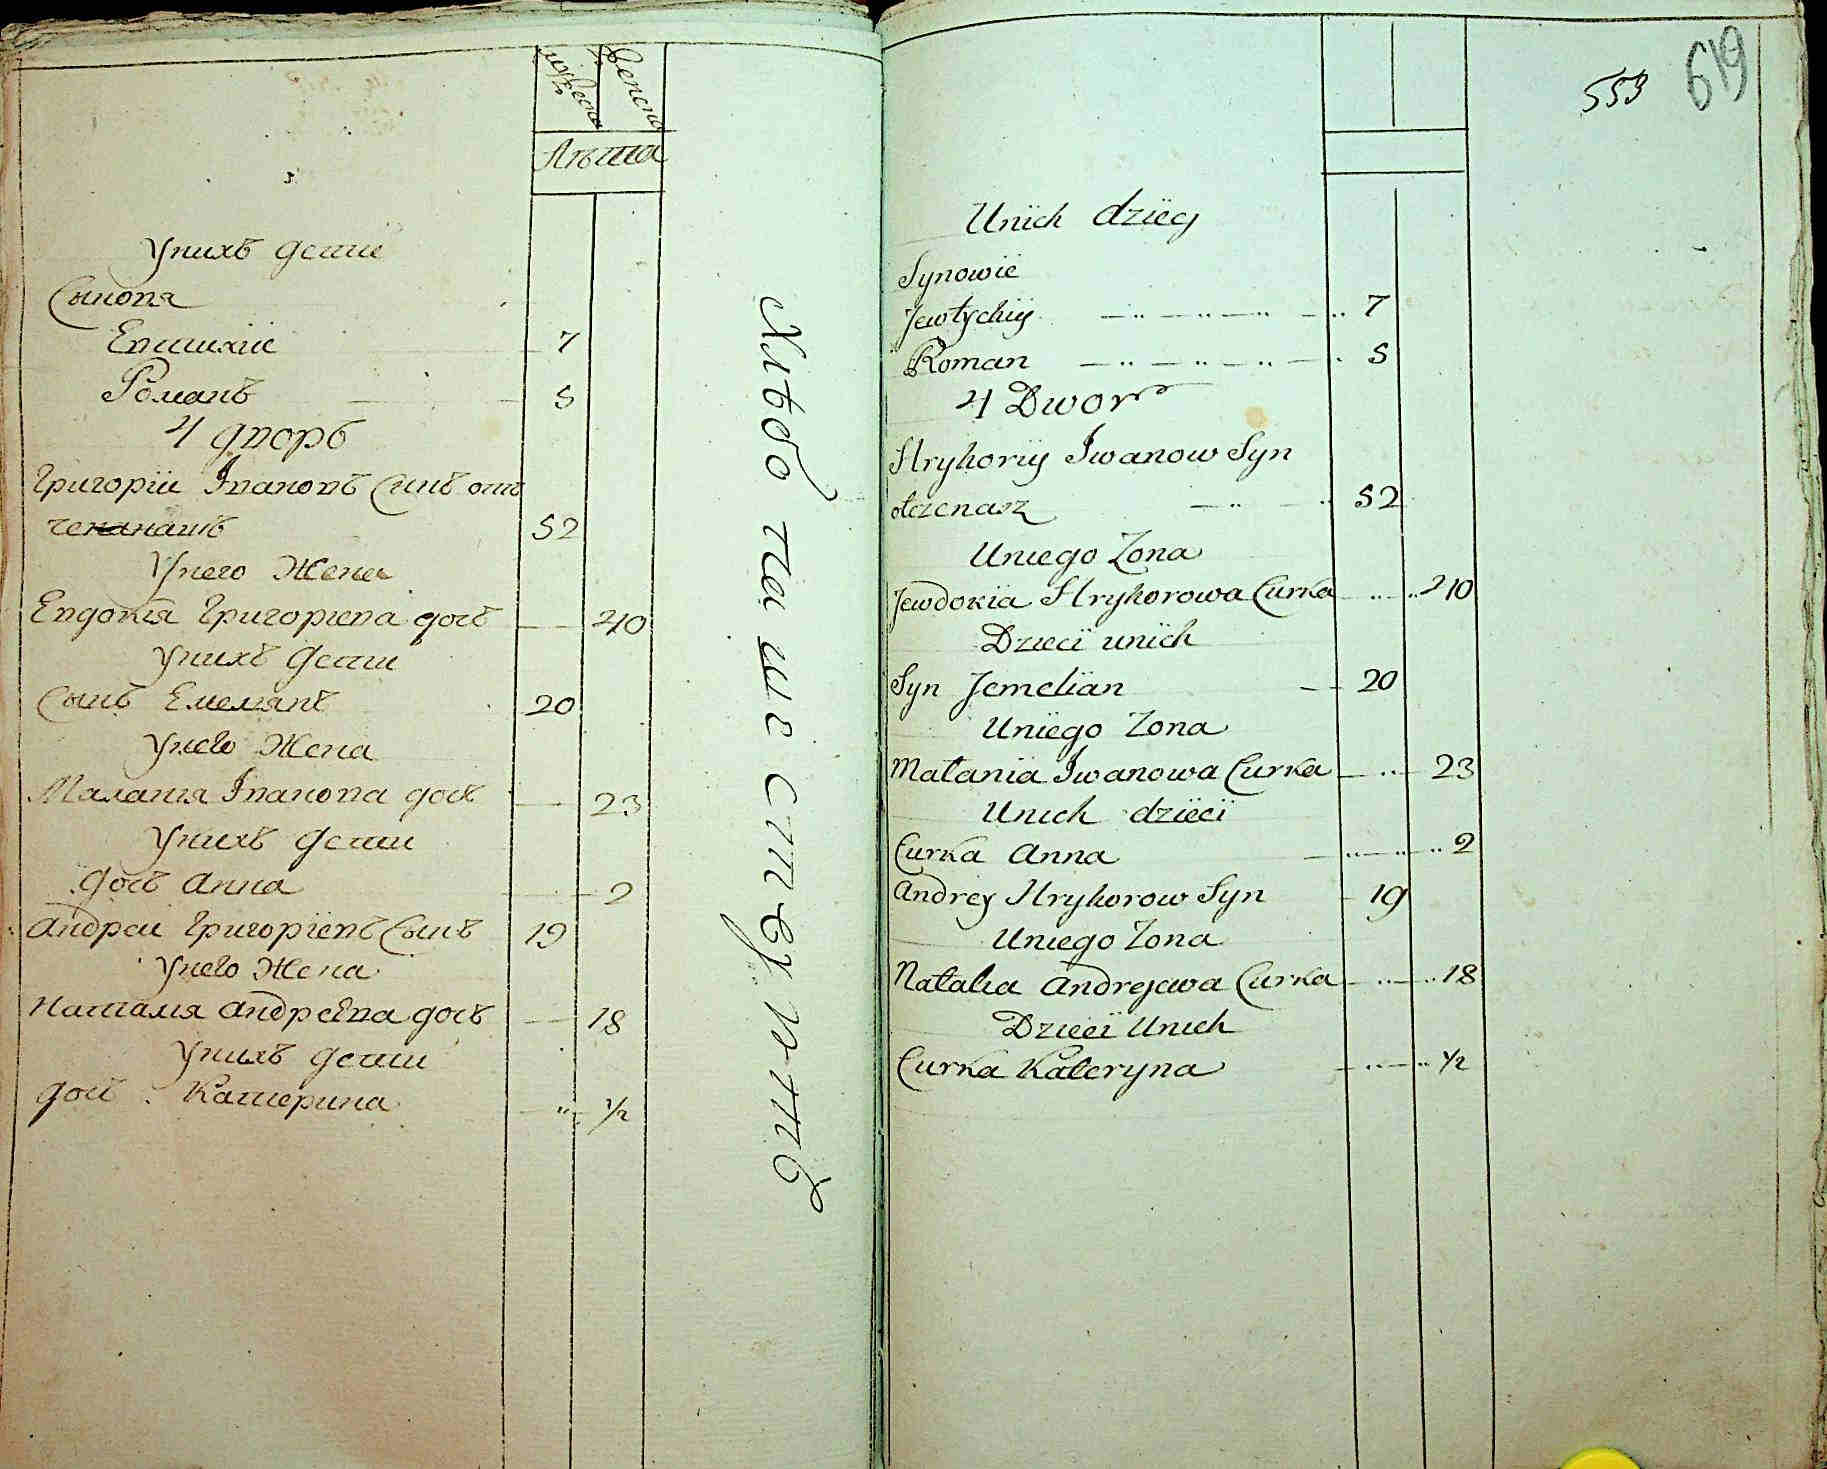 мужеска
женска
лѣта
Унихъ дети
Сынова
Евтихiи 7
Романъ 5
4 дворъ
Григорiи Ивановъ Синъ отъ
ченашъ 52
Унего Жена
Евдокiя Григориева дочъ 40
Унихъ дети
Сынъ Емелянъ 20
Унего Жена
Маланiя Иванова дочъ 23
Унихъ дети
дочъ Анна 2
Андреи Григорiевъ Сынъ 19
Унего Жена
Наталiя Андреева дочъ 18
Унихъ дети
дочъ Катерина ½
553
619
Unïch dzïecy
Synowïe
Jewtychiy 7
Roman 5
4 Dwor
Hryhoriy Iwanow Syn
otczenasz 52
Uniego Zona
Jewdokia Hryhorowa Curka 40
Dziecï unïch
Syn Jemelïan 20
Unïego Zona
Malania Iwanowa Curka 23
Unich dziecï
Curka Anna 2
Andrey Hryhorow Syn 19
Uniego Zona
Natalia Andrejewa Curka 18
Dziecï Unich
Curka Kateryna ½